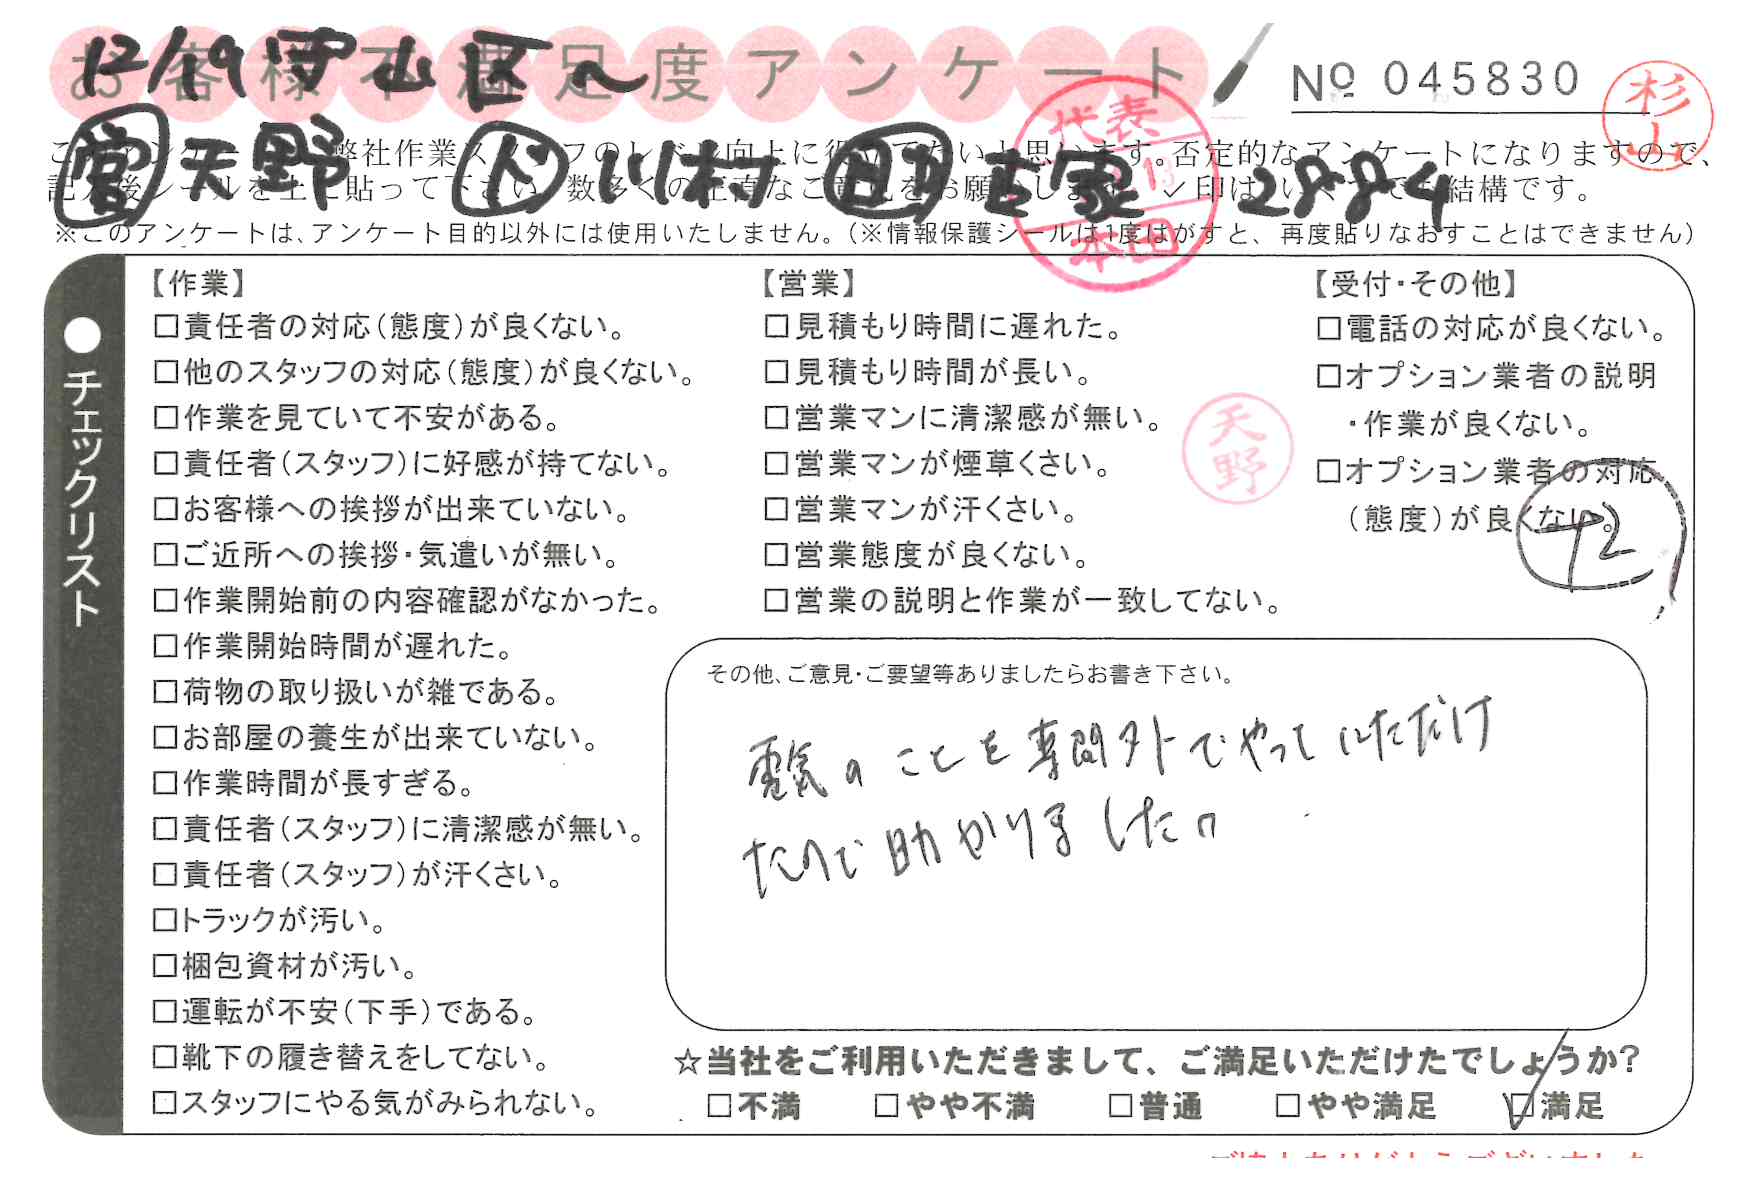 お客様不満足度アンケート
12/19 守山区〜
No 045830
杉山
営 天野 ド 川村 古家 2884
このアンケートは弊社作業スタッフのレベル向上に役立てたいと思います。否定的なアンケートになりますので、
記入後シールを上に貼って下さい。数多くの正直なご意見をお願いします。✓印はいくつでも結構です。
※このアンケートは、アンケート目的以外には使用いたしません。(※情報保護シールは1度はがすと、再度貼りなおすことはできません)
代表
13
本田
●チェックリスト
【作業】
□責任者の対応(態度)が良くない。
□他のスタッフの対応(態度)が良くない。
□作業を見ていて不安がある。
□責任者(スタッフ)に好感が持てない。
□お客様への挨拶が出来ていない。
□ご近所への挨拶・気遣いが無い。
□作業開始前の内容確認がなかった。
□作業開始時間が遅れた。
□荷物の取り扱いが雑である。
□お部屋の養生が出来ていない。
□作業時間が長すぎる。
□責任者(スタッフ)に清潔感が無い。
□責任者(スタッフ)が汗くさい。
□トラックが汚い。
□梱包資材が汚い。
□運転が不安(下手)である。
□靴下の履き替えをしてない。
□スタッフにやる気がみられない。
【営業】
□見積もり時間に遅れた。
□見積もり時間が長い。
□営業マンに清潔感が無い。
□営業マンが煙草くさい。
□営業マンが汗くさい。
□営業態度が良くない。
□営業の説明と作業が一致してない。
天野
【受付・その他】
□電話の対応が良くない。
□オプション業者の説明
・作業が良くない。
□オプション業者の対応
(態度)が良くない。
その他、ご意見・ご要望等ありましたらお書き下さい。
電気のことを専門外でやっていただけ
たので助かりました。
☆当社をご利用いただきまして、ご満足いただけたでしょうか?
□不満 □やや不満 □普通 □やや満足 ☑満足